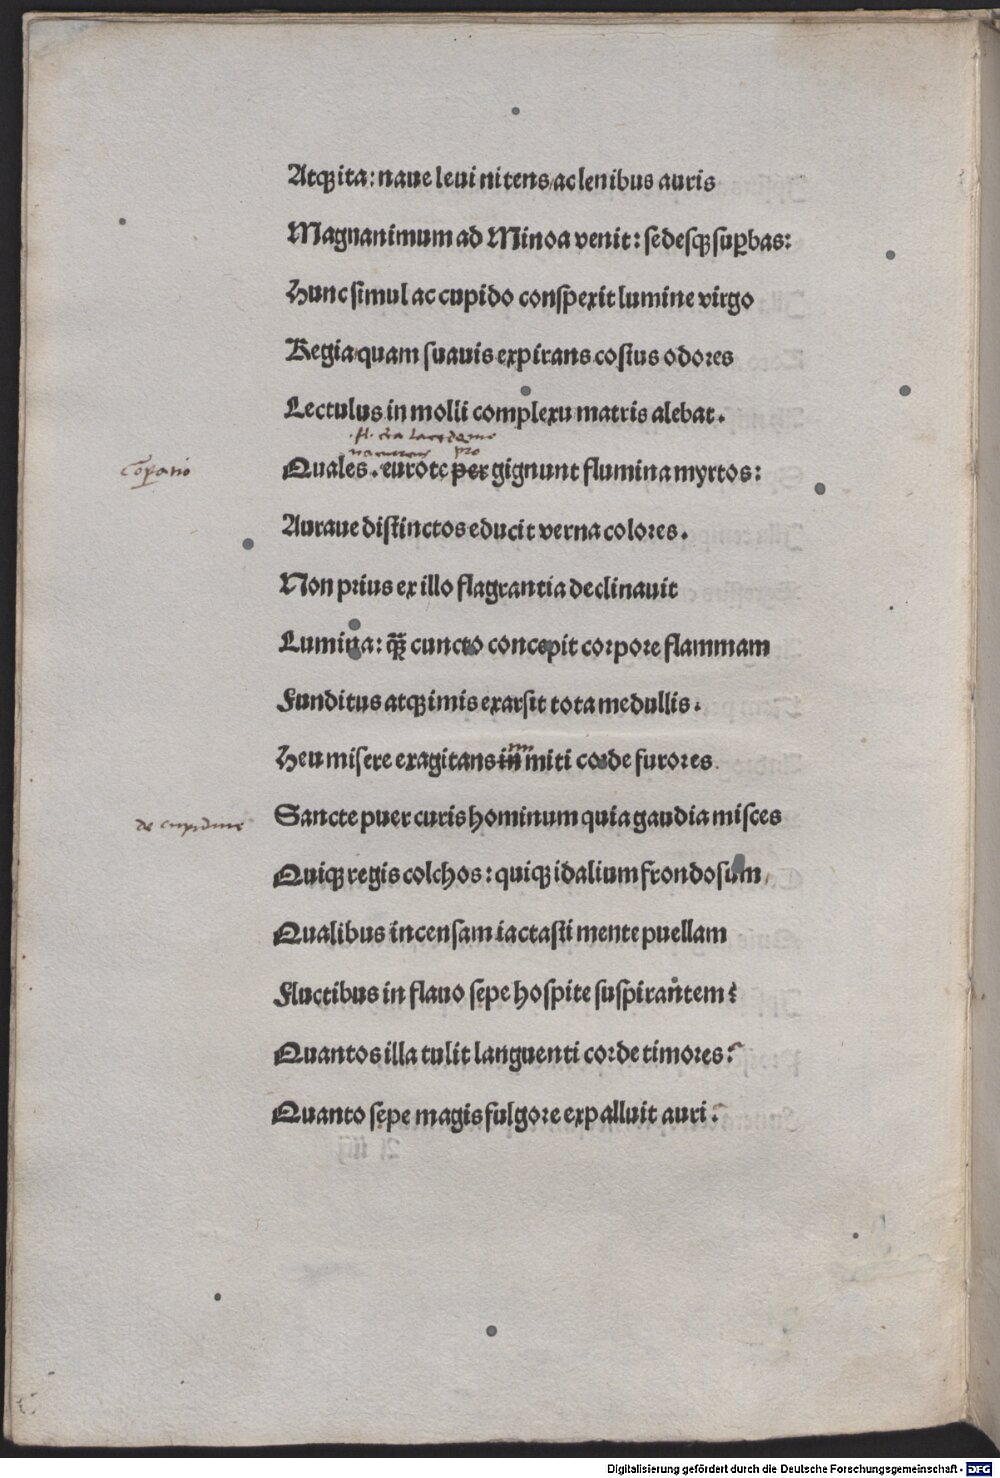 Atqꝫ ita: naue leui nitens/ac lenibus auris
Magnanimum ad Minoa venit: sedesqꝫ suꝑbas:
Hunc simul ac cupido conspexit lumine virgo
Regia/quam suauis expirans costus odores
Lectulus in molli complexu matris alebat.
pro
Comparatio
Quales. eurote per gignunt flumina myrtos:
Auraue distinctos educit verna colores.
Non prius ex illo flagrantia declinauit
Lumina: q̃ꝫ cuncto concepit corpore flammam
Funditus atqꝫ imis exarsit tota medullis.
Heu misere exagitans in miti corde furores
de cupidine
Sancte puer curis hominum quia gaudia misces
Quiqꝫ regis colchos: quiqꝫ idalium frondosum
Qualibus incensam iactasti mente puellam
Fluctibus in flauo sepe hospite suspirantem?
Quantos illa tulit languenti corde timores?
Quanto sepe magis fulgore expalluit auri?
Digitalisierung gefördert durch die Deutsche Forschungsgemeinschaft - DFG